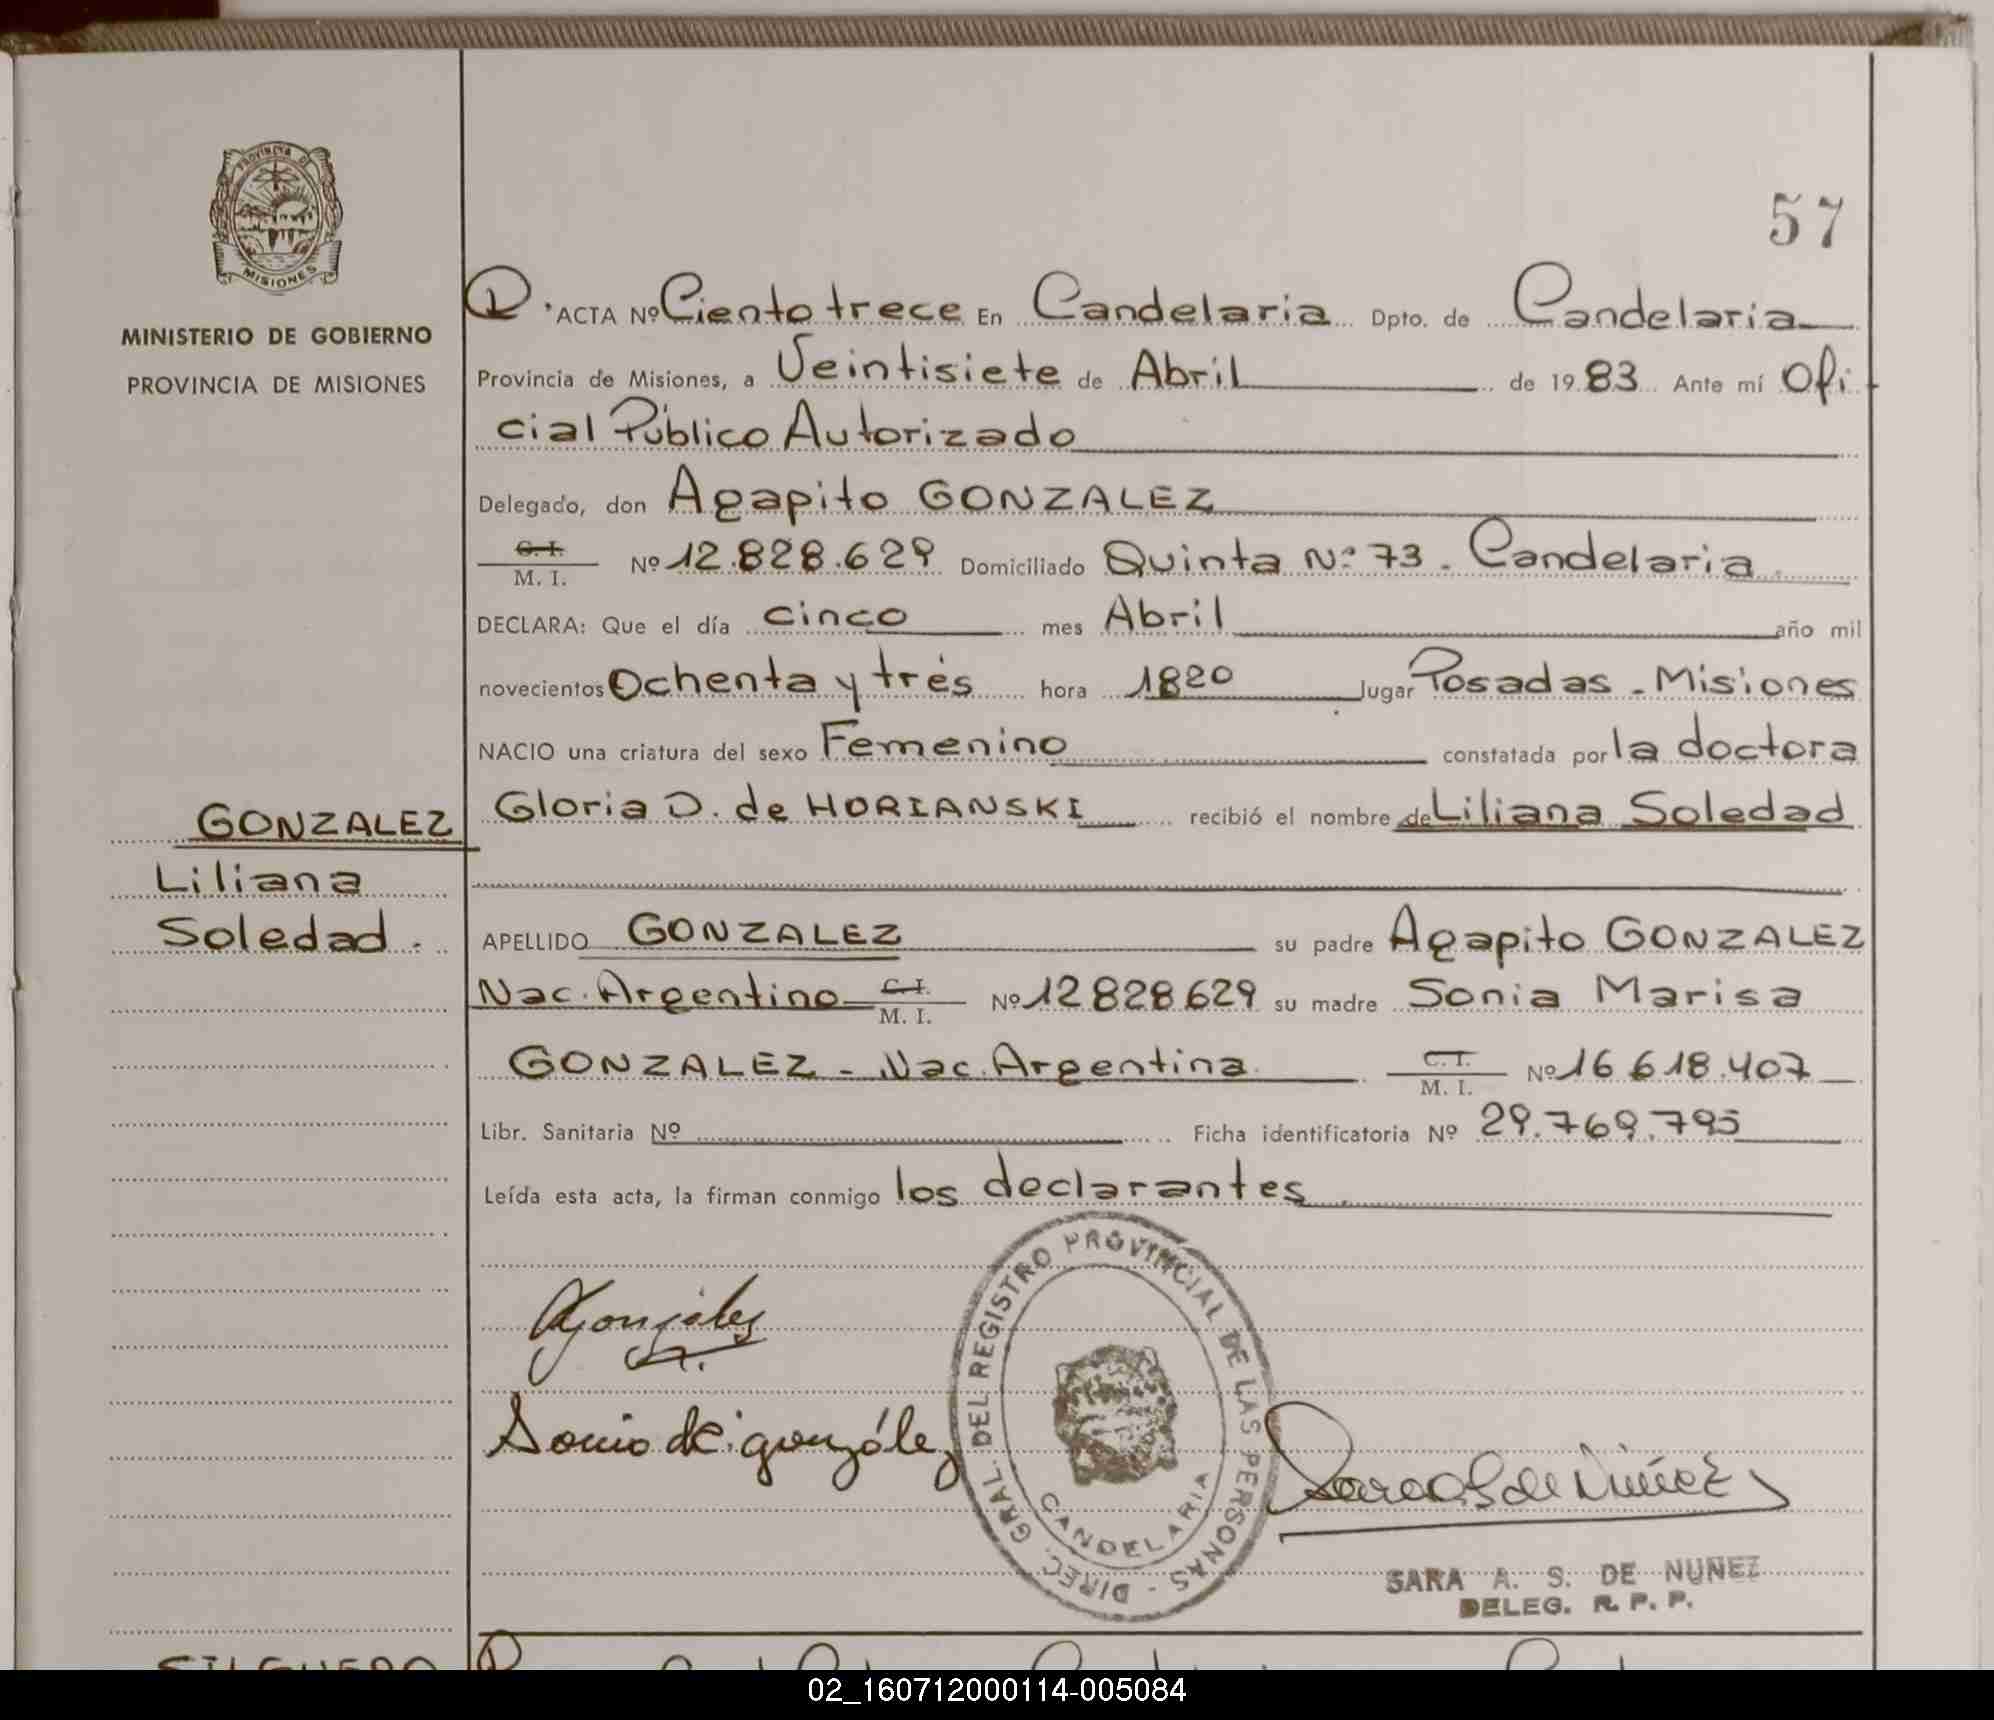 PROVINCIA DE
MISIONES
MINISTERIO DE GOBIERNO
PROVINCIA DE MISIONES
57
ACTA Nº Ciento trece En Candelaria Dpto. de Candelaria
Provincia de Misiones, a Veintisiete de Abril de 1983 Ante mí Ofi
cial Público Autorizado
Delegado, don Agapito GONZALEZ
C. I.
M. I. Nº 12.828.629 Domiciliado Quinta Nº 73. Candelaria.
DECLARA: Que el día cinco mes Abril año mil
novecientos Ochenta y trés hora 1820 lugar Posadas - Misiones
NACIO una criatura del sexo Femenino constatada por la doctora
Gloria D. de HORIANSKI recibió el nombre de Liliana Soledad
GONZALEZ
Liliana
Soledad.
APELLIDO GONZALEZ su padre Agapito GONZALEZ
Nac. Argentino C. I.
M. I. Nº 12828629 su madre Sonia Marisa
GONZALEZ - Nac. Argentina C. I.
M. I. Nº 16 618.407
Libr. Sanitaria Nº Ficha identificatoria Nº 29.769.795
Leída esta acta, la firman conmigo los declarantes.
AGonzález
Sonia de González
DIREC. GRAL. DEL REGISTRO PROVINCIAL DE LAS PERSONAS -
CANDELARIA
Sara A S de Núñez
SARA A. S. DE NUÑEZ
DELEG. R. P. P.
02_160712000114-005084